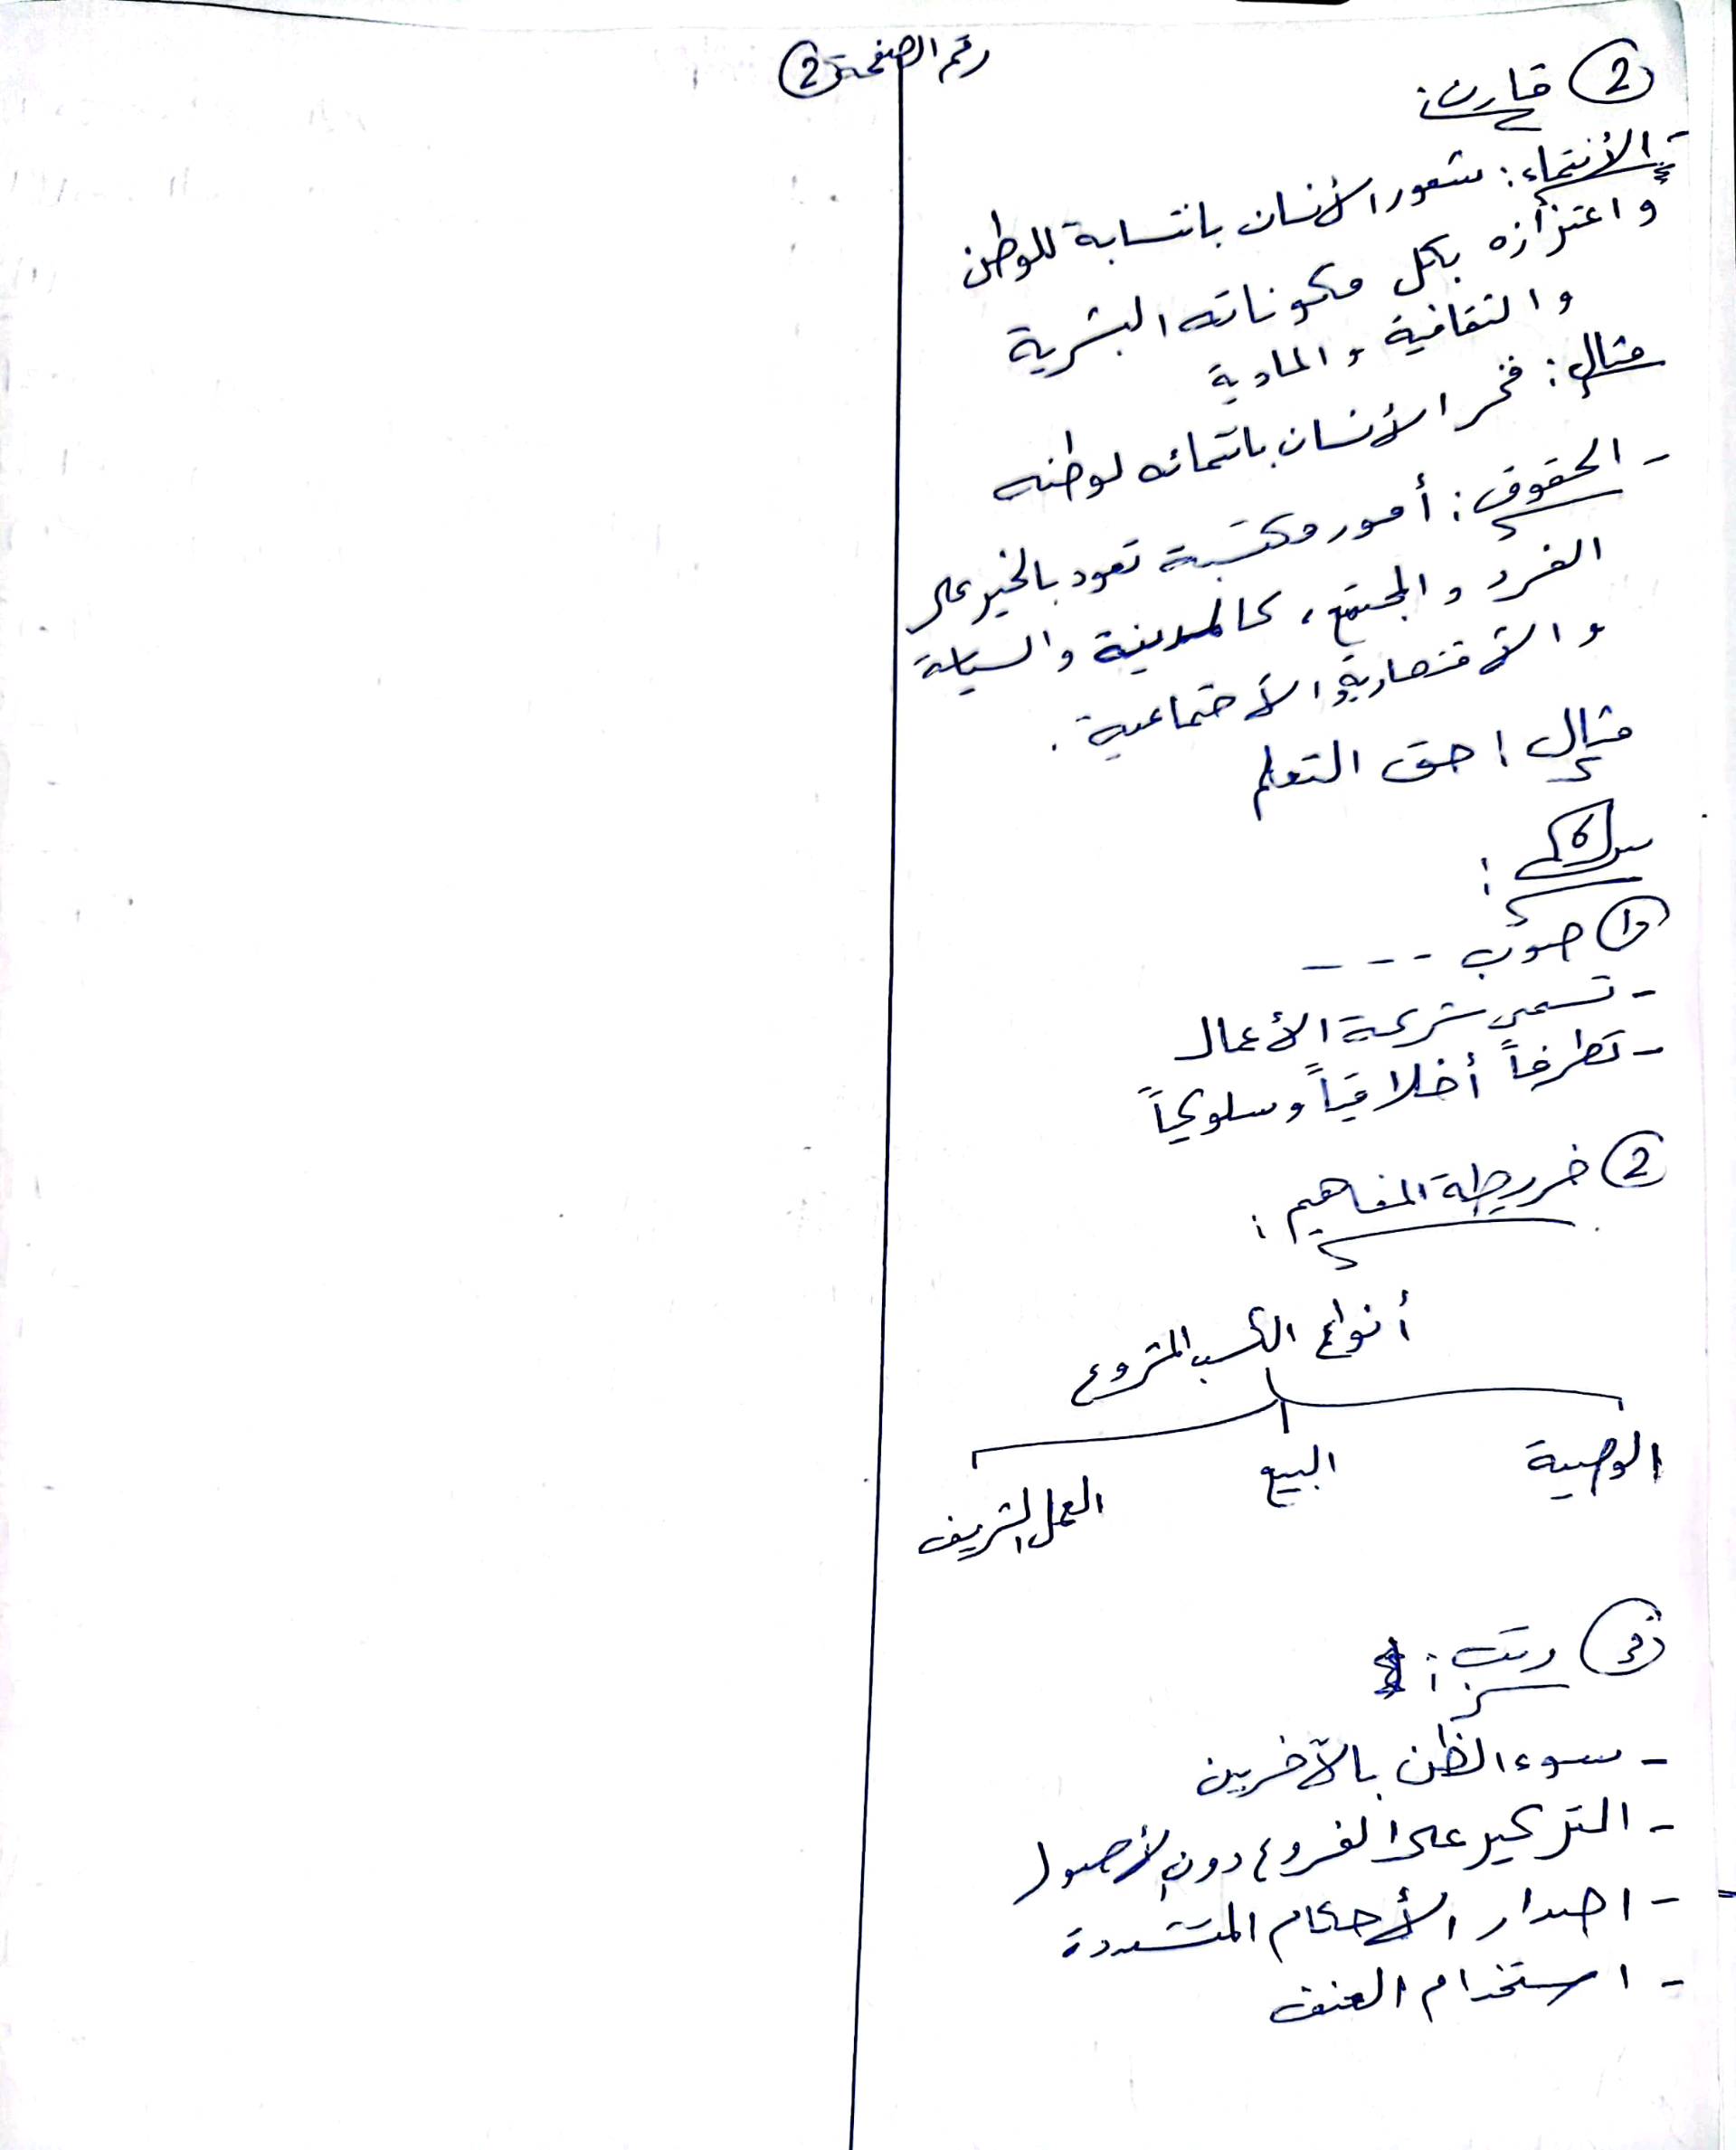 رقم الصفحة 2
2 قارن:
- الأنتماء: شعور الأنسان بانتسابة للوطن
و اعتزازه بكل مكوناته البشرية
و الثقافية و المادية
مثال: فخر الأنسان بانتمائه لوطنه
- الحقوق: أمور مكتسبة تعود بالخير على
الفرد و المجتمع، كالمدينية والسياسية
و الأقتصادية و الأجتماعية.
مثال: حق التعلم
:
1 صوّب - - - -
- تسمى شركة الأعمال
- تطرفاً أخلاقياً وسلوكياً
2 خريطة المفاهيم:
أنواع الكسب المشروع
الوصية البيع العمل الشريف
3 رتب:
- سوء الظن بالآخرين
- التركيز على الفروع دون الأصول
- اصدار الأحكام المتشددة
- استخدام العنف